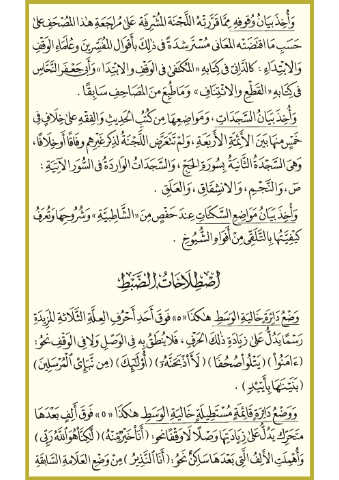 وَأُخِذَ بَيَانُ وُقُوفِهِ مِمَّا قَرَّرَتْهُ اللَّجْنَةُ الْمُشْرِفَةُ عَلَىٰ مُرَاجَعَةِ هٰذَا الْمُصْحَفِ عَلَىٰ
حَسَبِ مَا اقْتَضَتْهُ الْمَعَانِي مُسْتَرْشِدَةً فِي ذٰلِكَ بِأَقْوَالِ الْمُفَسِّرِينَ وَعُلَمَاءِ الْوَقْفِ
وَالِابْتِدَاءِ : كَالدَّانِيِّ فِي كِتَابِهِ «الْمُكْتَفَىٰ فِي الْوَقْفِ وَالِابْتِدَا» وَأَبِي جَعْفَرٍ النَّحَّاسِ
فِي كِتَابِهِ «الْقَطْعِ وَالِائْتِنَافِ» وَمَا طُبِعَ مِنَ الْمَصَاحِفِ سَابِقًا .
وَأُخِذَ بَيَانُ السَّجَدَاتِ ، وَمَوَاضِعِهَا مِنْ كُتُبِ الْحَدِيثِ وَالْفِقْهِ عَلَىٰ خِلَافٍ فِي
خَمْسٍ مِنْهَا بَيْنَ الْأَئِمَّةِ الْأَرْبَعَةِ ، وَلَمْ تَتَعَرَّضِ اللَّجْنَةُ لِذِكْرِ غَيْرِهِمْ وِفَاقًا أَوْ خِلَافًا ،
وَهِيَ السَّجْدَةُ الثَّانِيَةُ بِسُورَةِ الْحَجِّ ، وَالسَّجَدَاتُ الْوَارِدَةُ فِي السُّوَرِ الْآتِيَةِ :
صٓ ، وَالنَّجْمِ ، وَالِانْشِقَاقِ ، وَالْعَلَقِ .
وَأُخِذَ بَيَانُ مَوَاضِعِ السَّكَتَاتِ عِنْدَ حَفْصٍ مِنَ «الشَّاطِبِيَّةِ» وَشُرُوحِهَا وَتُعْرَفُ
كَيْفِيَّتُهَا بِالتَّلَقِّي مِنْ أَفْوَاهِ الشُّيُوخِ .
اصْطِلَاحَاتُ الضَّبْطِ
وَضْعُ دَائِرَةٍ خَالِيَةِ الْوَسَطِ هٰكَذَا «ه» فَوْقَ أَحَدِ أَحْرُفِ الْعِلَّةِ الثَّلَاثَةِ الْمَزِيدَةِ
رَسْمًا يَدُلُّ عَلَىٰ زِيَادَةِ ذٰلِكَ الْحَرْفِ ، فَلَا يُنْطَقُ بِهِ فِي الْوَصْلِ وَلَا فِي الْوَقْفِ نَحْوُ :
(ءَامَنُواْ) (يَتْلُواْ صُحُفًا) (لَأَاْذْبَحَنَّهُۥٓ) (أُوْلَٰٓئِكَ) (مِن نَّبَإِيْ ٱلْمُرْسَلِينَ)
(بَنَيْنَٰهَا بِأَيْيْدٍ) .
وَوَضْعُ دَائِرَةٍ قَائِمَةٍ مُسْتَطِيلَةٍ خَالِيَةِ الْوَسَطِ هٰكَذَا «ه» فَوْقَ أَلِفٍ بَعْدَهَا
مُتَحَرِّكٌ يَدُلُّ عَلَىٰ زِيَادَتِهَا وَصْلًا لَا وَقْفًا نَحْوُ : (أَنَا۠ خَيْرٌ مِّنْهُ) (لَّٰكِنَّا۠ هُوَ ٱللَّهُ رَبِّي)
وَأُهْمِلَتِ الْأَلِفُ الَّتِي بَعْدَهَا سَاكِنٌ نَحْوُ : (أَنَا ٱلنَّذِيرُ) مِنْ وَضْعِ الْعَلَامَةِ السَّابِقَةِ